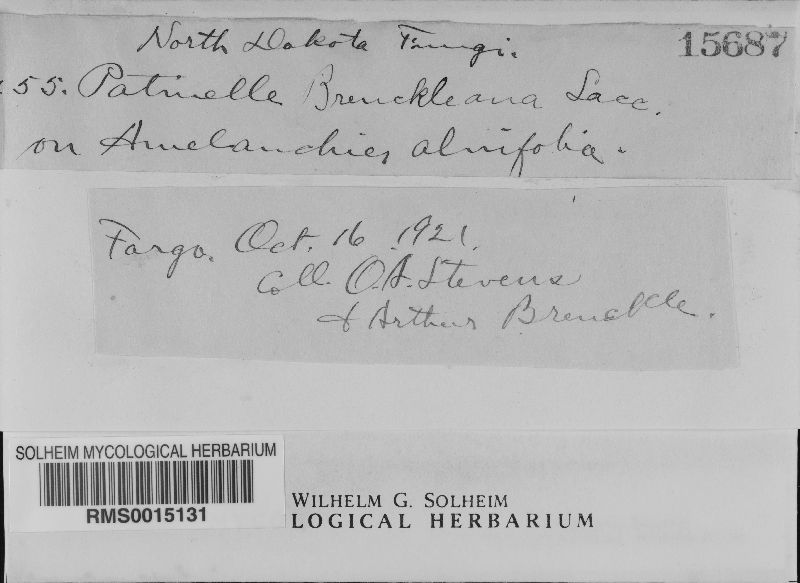 North Dakota Fungi.
15687
55. Patinella Brenckleana Sacc.
on Amelanchier alnifolia.
Fargo. Oct. 16 1921.
Coll. O.A. Stevens
& Arthur Brenckle.
SOLHEIM MYCOLOGICAL HERBARIUM
RMS0015131
WILHELM G. SOLHEIM
LOGICAL HERBARIUM